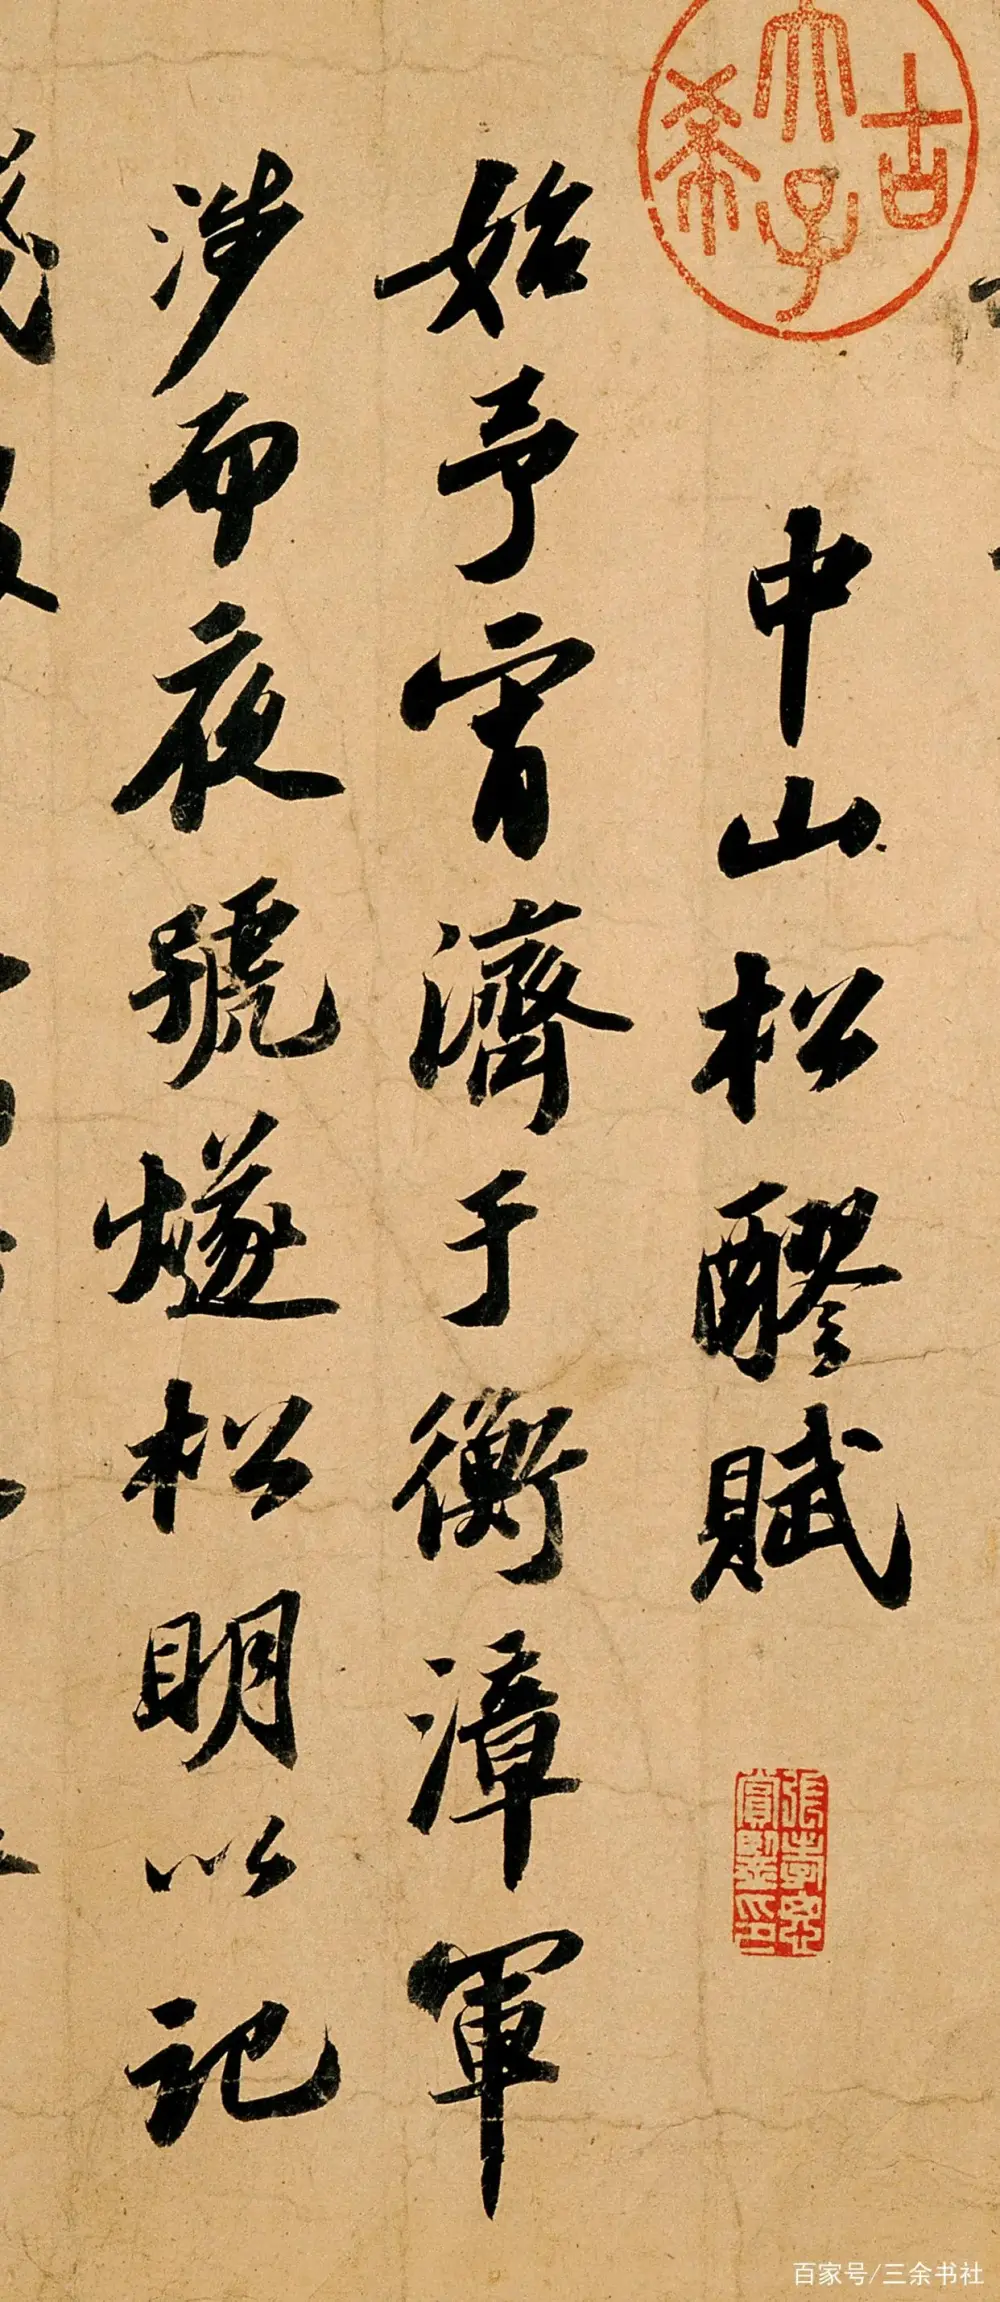 古希天子
中山松醪賦
張孝思賞鑒印
始予宵濟于衡漳軍
涉而夜號燧松明以記
百家号/三余书社